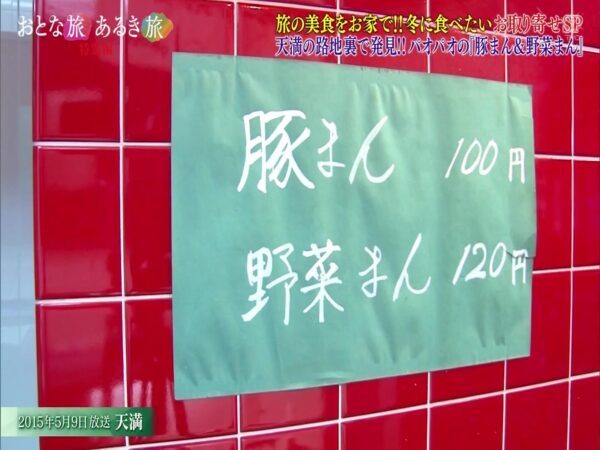 おとな旅 あるき旅
旅の美食をお家で!!冬に食べたいお取り寄せSP
天満の路地裏で発見!! パオパオの『豚まん&野菜まん』
豚まん 100円
野菜まん 120円
2015年5月9日放送 天満